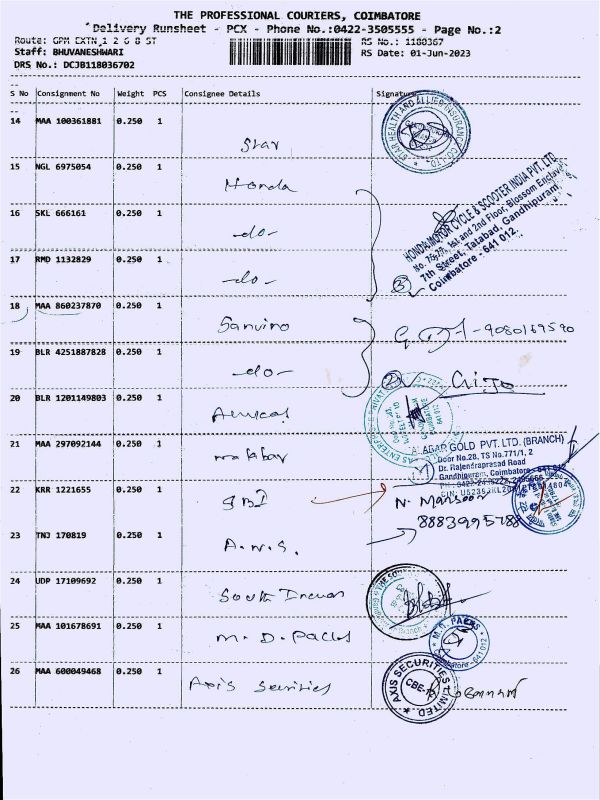 THE PROFESSIONAL COURIERS, COIMBATORE
Delivery Runsheet - PCX - Phone No.:0422-3505555 - Page No.:2
Route: GPM EXTN 1 2 6 8 ST RS No.: 1180367
Staff: BHUVANESHWARI RS Date: 01-Jun-2023
DRS No.: DCJB118036702
S No Consignment No Weight PCS Consignee Details Signature
14 MAA 100361881 0.250 1 Star
STAR HEALTH AND ALLIED INSURANCE CO. LTD.
15 NGL 6975054 0.250 1 Honda
16 SKL 666161 0.250 1 -do-
17 RMD 1132829 0.250 1 -do-
HONDA MOTOR CYCLE & SCOOTER INDIA PVT. LTD.
1st and 2nd Floor, Blossom Enclave
7th Street, Tatabad, Gandhipuram,
Coimbatore - 641 012.
3
18 MAA 860237870 0.250 1 Sanvino
9080169590
19 BLR 4251887828 0.250 1 -do-
2
20 BLR 1201149803 0.250 1
21 MAA 297092144 0.250 1 malabar
GOLD PVT. LTD. (BRANCH)
Door No.28, TS No.771/1, 2
Dr. Rajendraprasad Road
Gandhipuram, Coimbatore - 641 012
22 KRR 1221655 0.250 1 SBI
N. Mansoor
8883995788
23 TNJ 170819 0.250 1 A.N.S.
24 UDP 17109692 0.250 1 South Indian
25 MAA 101678691 0.250 1 M. D. Packs
M.D. PACKS
Coimbatore - 641 012
26 MAA 600049468 0.250 1 Axis Securities
AXIS SECURITIES LIMITED
CBE-1